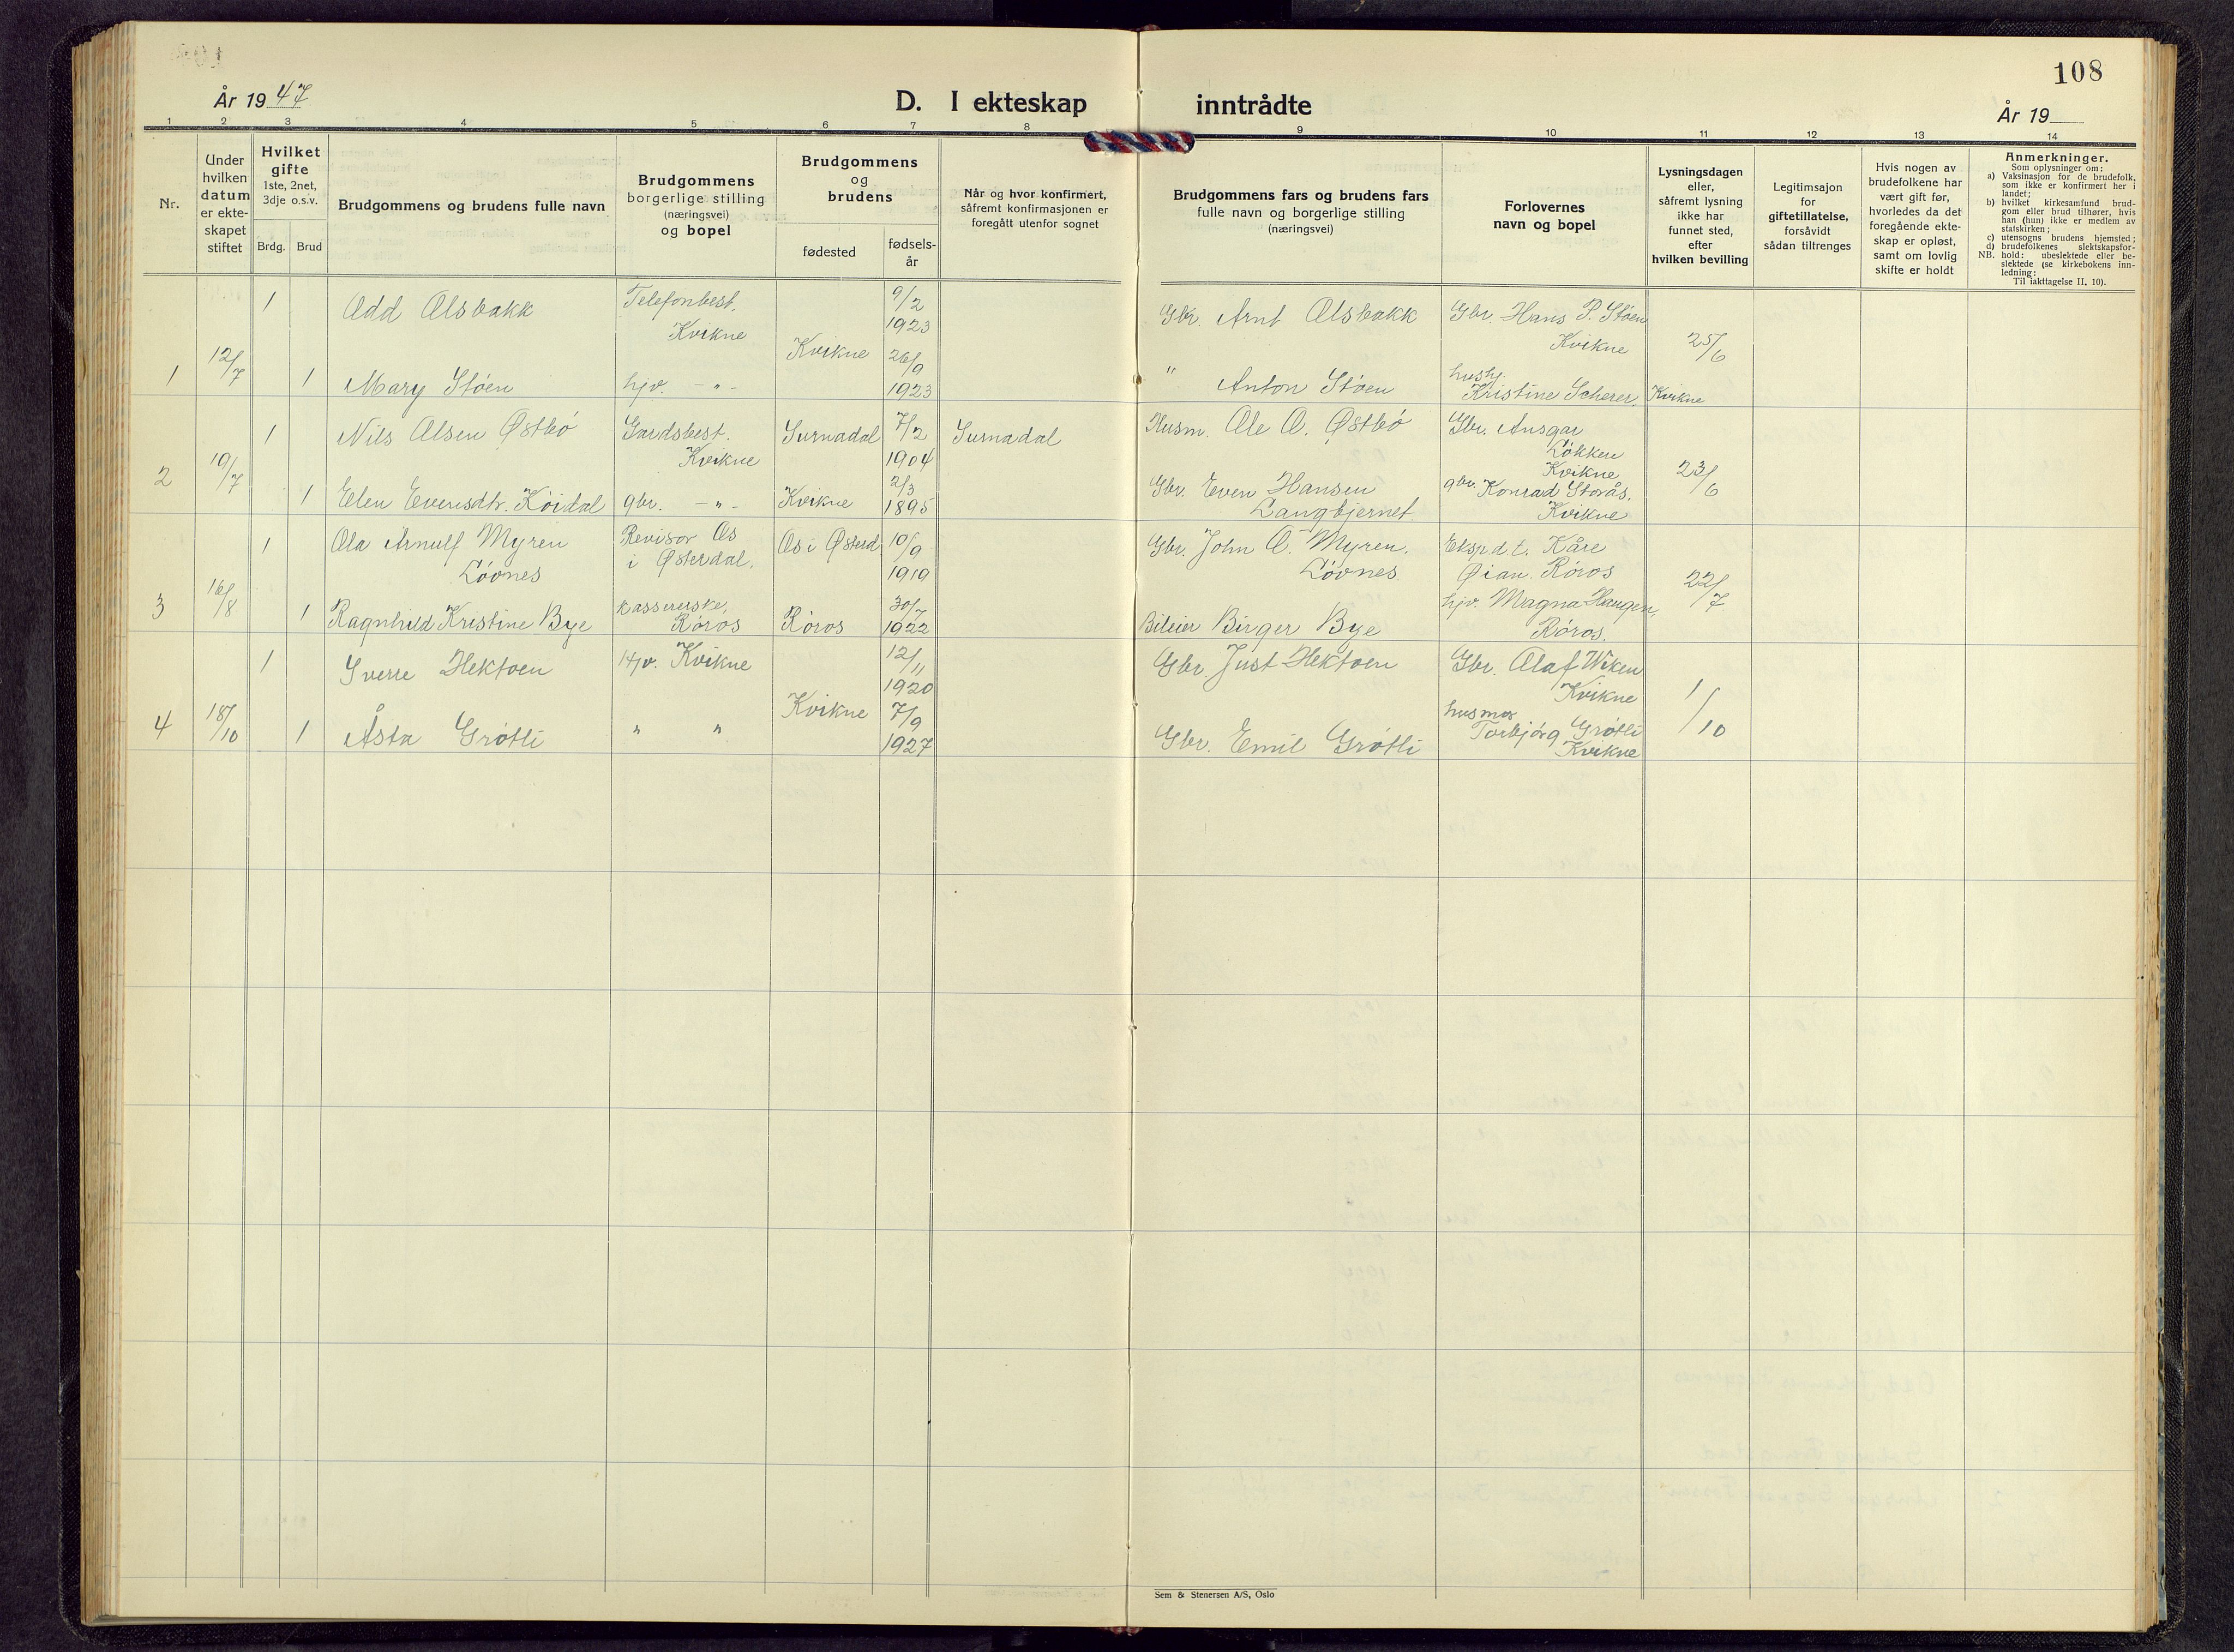 108
År 1947
D. I ekteskap inntrådte
År 19
1 2 3 4 5 6 7 8 9 10 11 12 13 14
Nr.
Under hvilken datum er ekteskapet stiftet
Hvilket gifte 1ste, 2net, 3dje o.s.v.
Brdg. Brud
Brudgommens og brudens fulle navn
Brudgommens borgerlige stilling (næringsvei) og bopel
Brudgommens og brudens
fødested
fødsels-år
Når og hvor konfirmert, såfremt konfirmasjonen er foregått utenfor sognet
Brudgommens fars og brudens fars fulle navn og borgerlige stilling (næringsvei)
Forlovernes navn og bopel
Lysningsdagen eller, såfremt lysning ikke har funnet sted, efter hvilken bevilling
Legitimsajon for giftetillatelse, forsåvidt sådan tiltrenges
Hvis nogen av brudefolkene har vært gift før, hvorledes da det foregående ekteskap er opløst, samt om lovlig skifte er holdt
Anmerkninger.
Som oplysninger om:
a) Vaksinasjon for de brudefolk, som ikke er konfirmert her i landet;
b) hvilket kirkesamfund brudgom eller brud tilhører, hvis han (hun) ikke er medlem av statskirken;
c) utensogns brudens hjemsted;
d) brudefolkenes slektskapsfor-
NB. hold: ubeslektede eller beslektede (se kirkebokens innledning:
Til iakttagelse II, 10).
1 12/7 1 Odd Olsbakk Telefonbest. Kvikne 9/2 1923 Gbr. Arnt Olsbakk Gbr. Hans P. Støen Kvikne 25/6
1 Mary Støen hjv. - " - Kvikne 26/9 1923 " Anton Støen hushj. Kristine Scherer, Kvikne
2 19/7 1 Nils Olsen Østbø Gardsbest. Kvikne Surnadal 7/2 1904 Surnadal Husm. Ole O. Østbø Gbr. Ansgar Løkken Kvikne 23/6
1 Elen Evensdtr. Køidal gbr. - " - Kvikne 2/3 1895 Gbr. Even Hansen Langkjernet gbr. Konrad Storås. Kvikne
3 16/8 1 Ola Arnulf Myren Løvnes Revisor Os i Østerdal. Os i Østerd 10/9 1919 Gbr. John O. Myren. Løvnes. Ekspdt. Kåre Øian. Røros 22/7
1 Ragnhild Kristine Bye kassererske, Røros Røros 30/7 1922 Bileier Birger Bye hjv. Magna Haugen, Røros.
4 18/10 1 Sverre Hektoen Hjv. Kvikne 12/11 1920 Gbr. Just Hektoen Gbr. Olaf Wiken Kvikne 1/10
1 Åsta Grøtli " " Kvikne 7/9 1927 Gbr. Emil Grøtli husmor Torbjørg Grøtli Kvikne
Sem & Stenersen A/S, Oslo